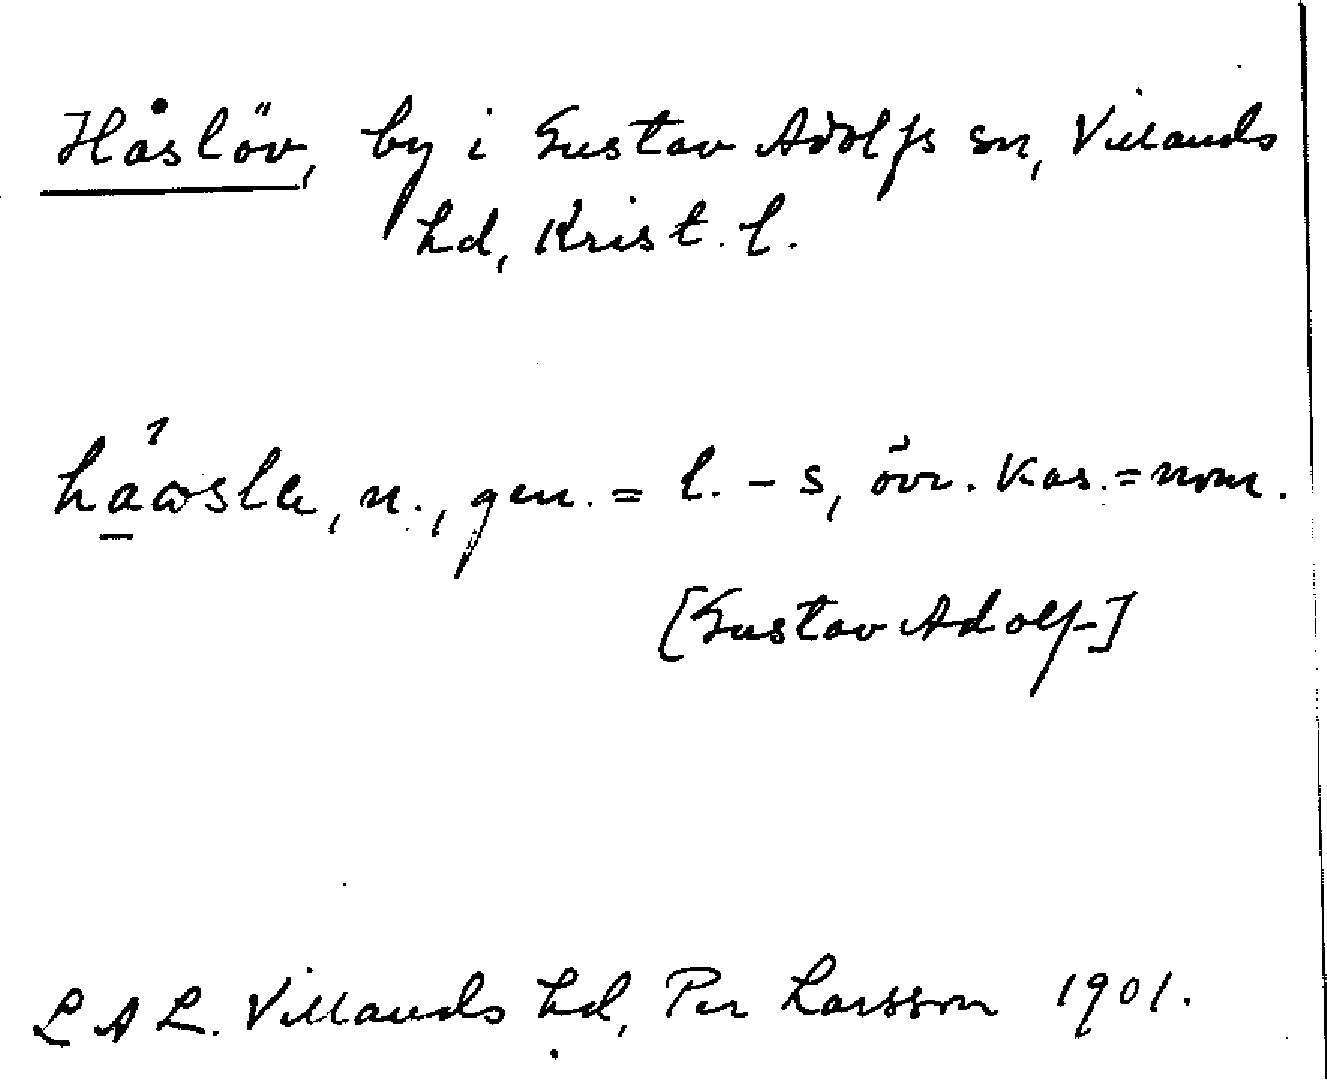 Håslöv, by i Gustav Adolfs sn, Villands
hd, Krist. l.
håωsla, n., gen. = l. - s, övr. kas. = nom.
[Gustav Adolf-]
LAL. Villands hd, Per Larsson 1901.